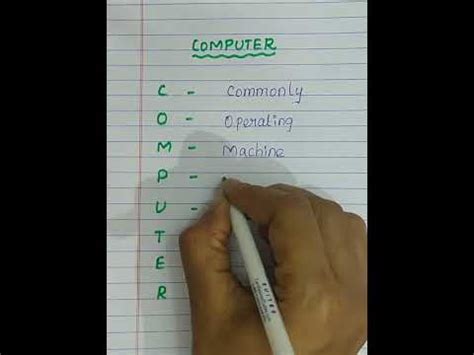 COMPUTER
C - Commonly
O - Operating
M - Machine
P -
U -
T
E
R